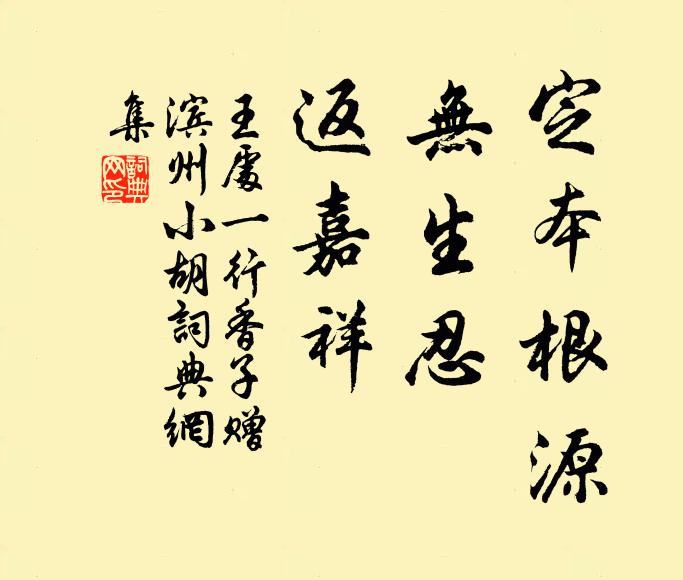 定本根源
無生忍
返嘉祥
王處一行香子赠
滨州小胡詞典網
集
詞典网印